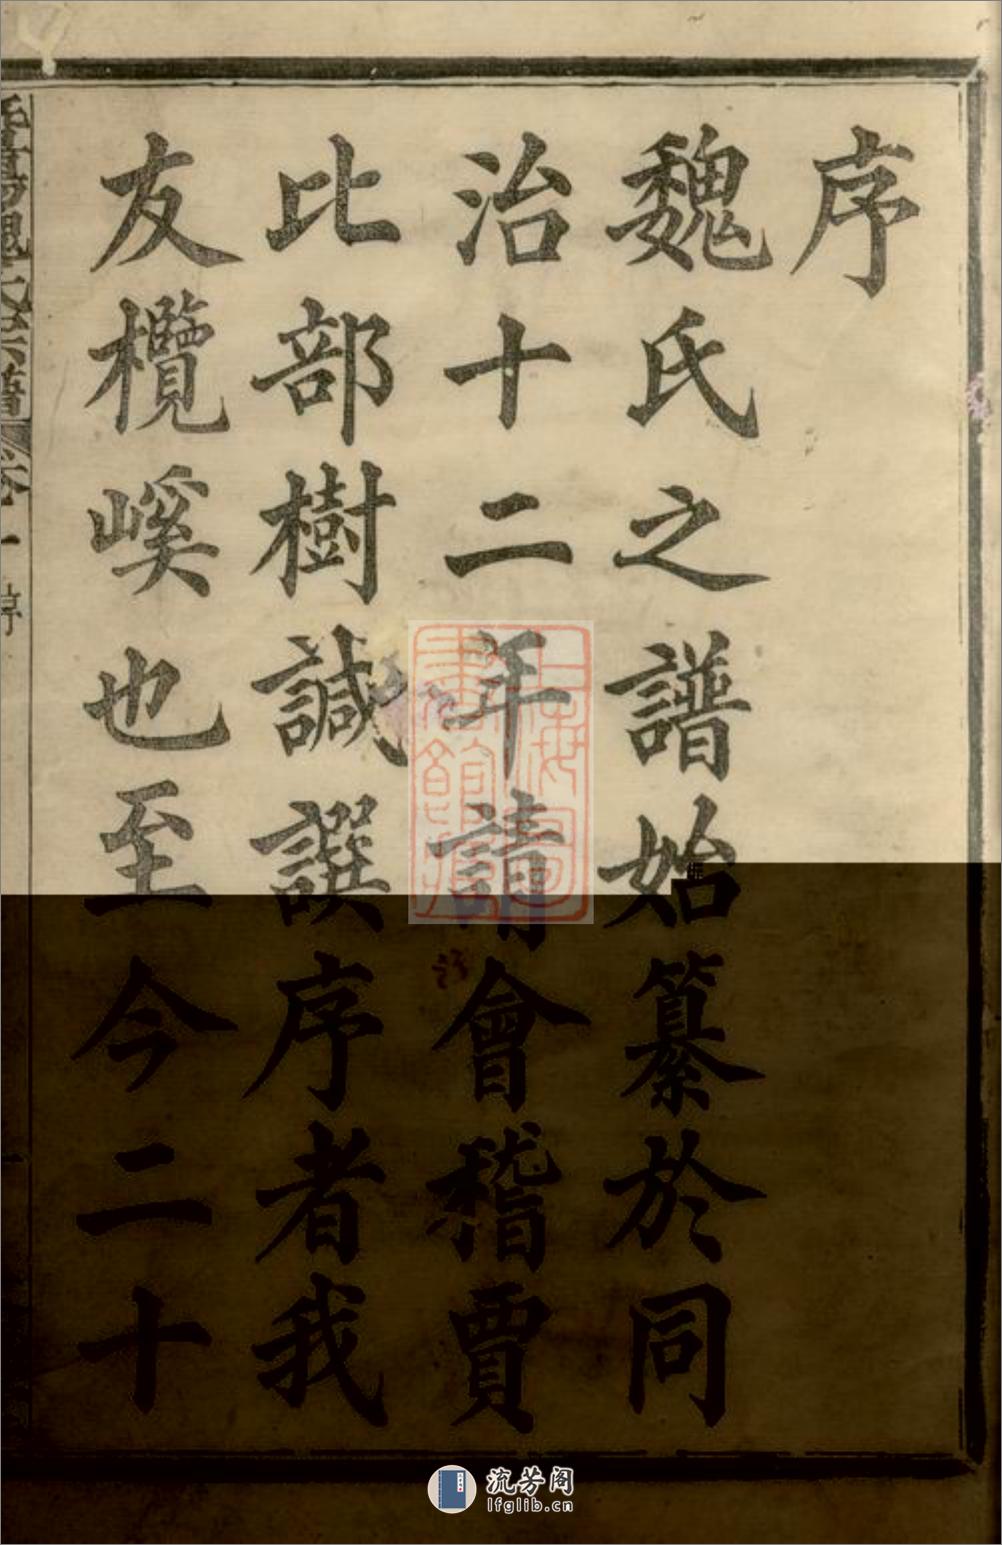 序
魏氏之譜始纂於同
治十二年請會稽賈
比部樹諴譔序者我
友欖嵠也至今二十
魏氏宗譜 卷一 序
上海圖書館藏
流芳阁
lfglib.cn